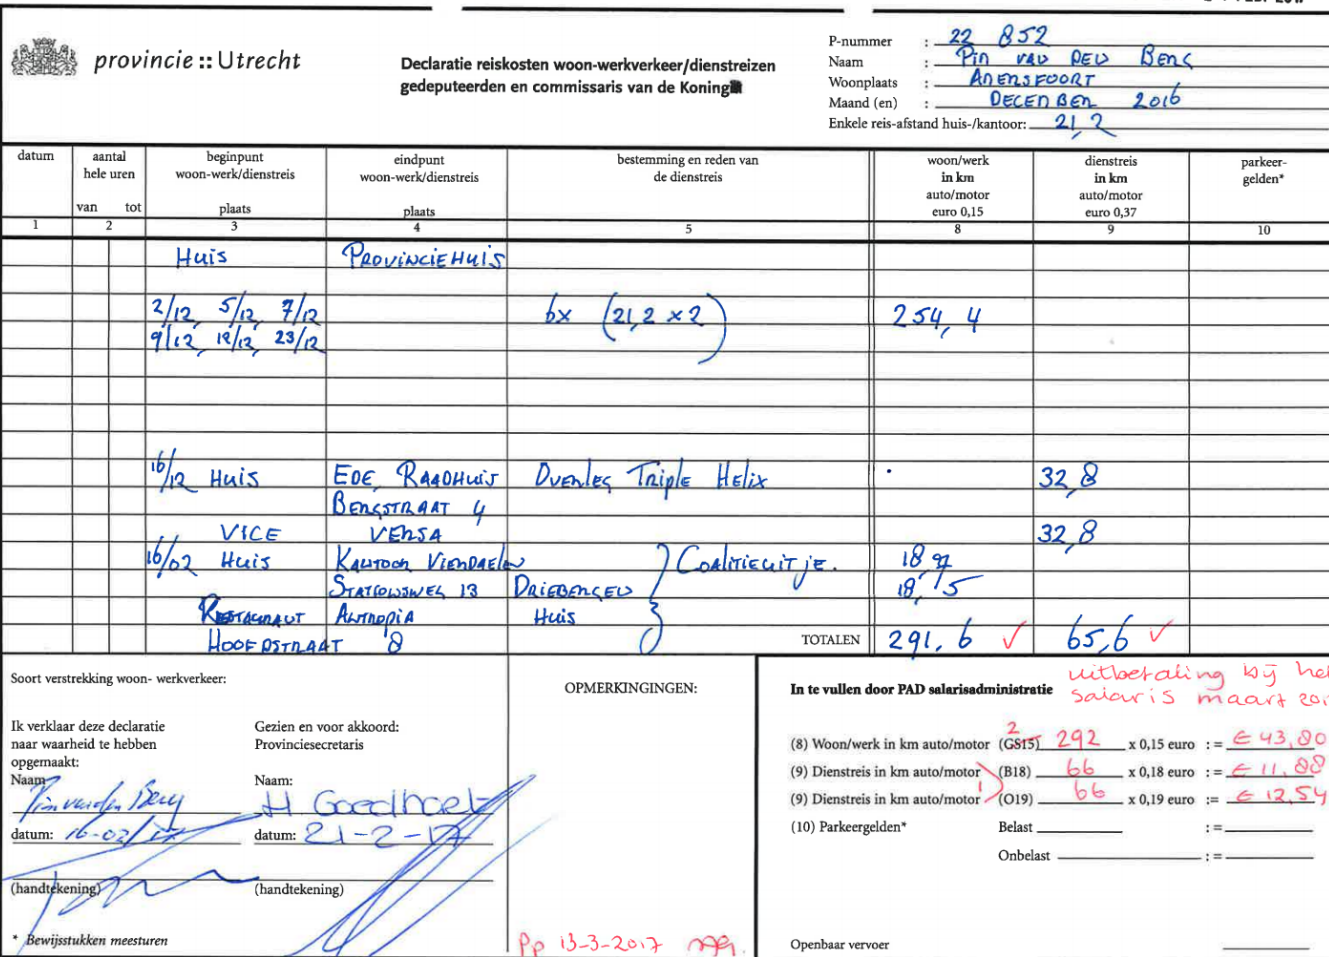 provincie :: Utrecht
Declaratie reiskosten woon-werkverkeer/dienstreizen
gedeputeerden en commissaris van de Koning
P-nummer : 22 852
Naam : Pim van den Berg
Woonplaats : Amersfoort
Maand (en) : December 2016
Enkele reis-afstand huis-/kantoor: 21,2
datum
aantal hele uren van tot
beginpunt woon-werk/dienstreis plaats
eindpunt woon-werk/dienstreis plaats
bestemming en reden van de dienstreis
woon/werk in km auto/motor euro 0,15
dienstreis in km auto/motor euro 0,37
parkeer-gelden*
1 2 3 4 5 8 9 10
Huis Provinciehuis
2/12, 5/12, 7/12 6x (21,2 x 2) 254,4
9/12, 19/12, 23/12
16/12 Huis Ede, Raadhuis Overleg Triple Helix 32,8
Bergstraat 4
Vice Versa 32,8
16/02 Huis Kantoor Coalitieuitje. 18,7
13 Driebergen 18,5
Restaurant Antropia Huis
Hoofdstraat 8
TOTALEN 291,6 65,6
Soort verstrekking woon- werkverkeer:
Ik verklaar deze declaratie
naar waarheid te hebben
opgemaakt:
Naam: Pim van den Berg
datum: 16-02/17
(handtekening)
* Bewijsstukken meesturen
Gezien en voor akkoord:
Provinciesecretaris
Naam: H Goedhart
datum: 21-2-17
(handtekening)
OPMERKINGINGEN:
Pp 13-3-2017
In te vullen door PAD salarisadministratie
uitbetaling bij
salaris maart
(8) Woon/werk in km auto/motor (GS15) 2 292 x 0,15 euro : = € 43,80
(9) Dienstreis in km auto/motor (B18) 66 x 0,18 euro : = € 11,88
(9) Dienstreis in km auto/motor 1 (O19) 66 x 0,19 euro := € 12,54
(10) Parkeergelden* Belast : =
Onbelast : =
Openbaar vervoer